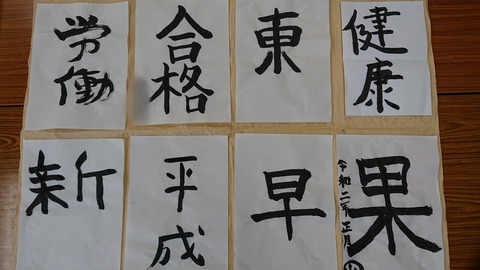 労働
合格
東
健康
新
平成
早
果
令和二年正月